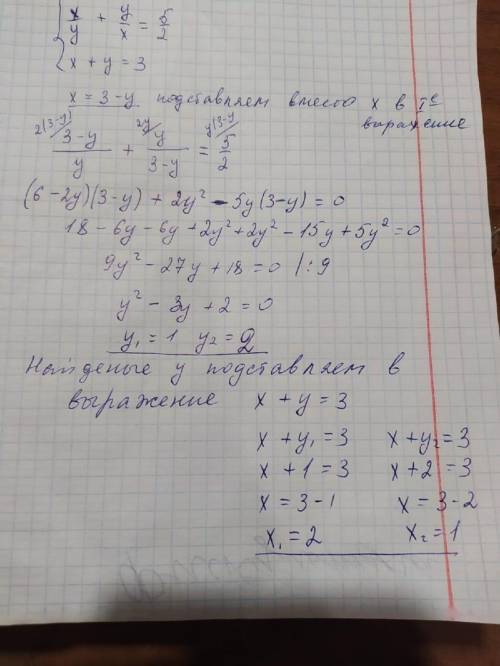 x/y + y/x = 5/2
x + y = 3
x = 3-y подставляем вместо x в Iе
выражение
2(3-y) 2y y(3-y
3-y/y + y/3-y = 5/2
(6-2y)(3-y) + 2y² - 5y(3-y) = 0
18 - 6y - 6y + 2y² + 2y² - 15y + 5y² = 0
9y² - 27y + 18 = 0 /:9
y² - 3y + 2 = 0
y₁ = 1 y₂ = 2
Найденые y подставляем в
выражение x + y = 3
x + y₁ = 3 x + y₂ = 3
x + 1 = 3 x + 2 = 3
x = 3 - 1 x = 3 - 2
x₁ = 2 x₂ = 1